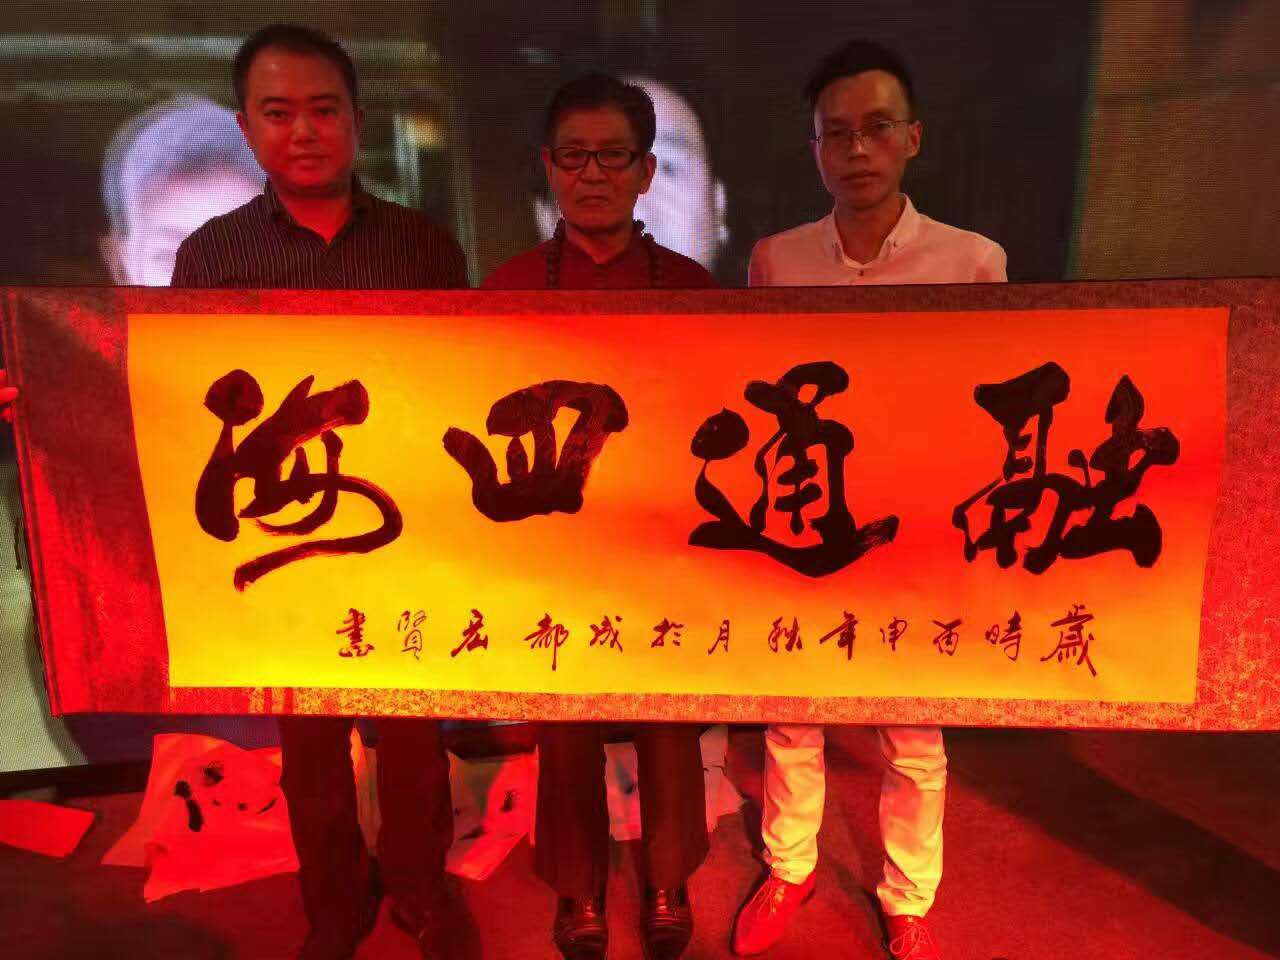 融通四海
歲時丙申年秋月於成都宏賢書